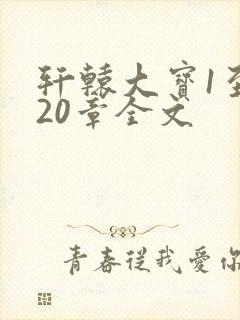 轩辕大寶1至
20章全文
青春從我愛你